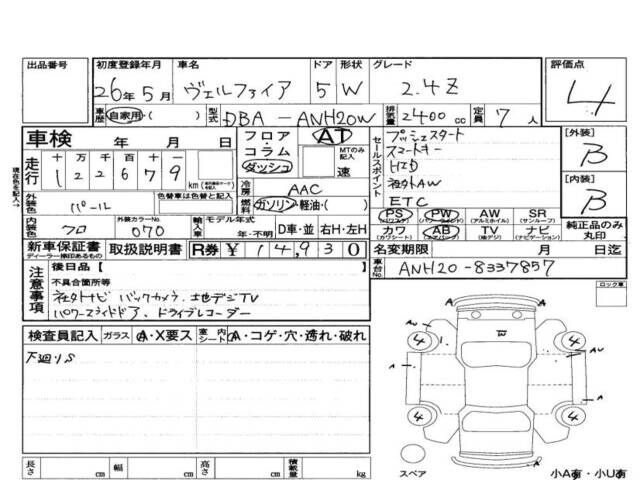 出品番号 初度登録年月 車名 ドア 形状 グレード 評価点
26年5月 ヴェルファイア 5 W 2.4Z 4
車歴 自家用・( ) 型式 DBA-ANH20W 排気量 2400cc 定員 7人
車検 年 月 日 フロア・コラム ダッシュ AT MTのみ記入 速
走行 十万千百十一 122679 km
現在色を記入→
外装色 パール 色替車は色替と記入 冷房 AAC
燃料 ガソリン・軽油・( )
内装色 クロ 外装カラーNo 070 輸入車 モデル年式 年・不明 D車・並 右H・左H
新車保証書 ディーラー捺印あるもの 取扱説明書 R券 ¥14,930
セールスポイント
プッシュスタート
スマートキー
HID
社外AW
ETC
PS (パワステ) PW (パワーウィンドウ) AW (アルミホイル) SR (サンルーフ)
カワ (カワシート) AB (エアバッグ) TV (純デジ) ナビ (ナビゲーション)
[外装] B
[内装] B
純正品のみ丸印
名変期限 月 日迄
車台No. ANH20-8337857
注意事項
後日品 [ ]
不具合箇所等
社外ナビ バックカメラ 地デジTV
パワースライドドア、ドライブレコーダー
ロック車
検査員記入 ガラス A・X要ス 室内シート A・コゲ・穴・濡れ・破れ
下廻りS
A AU 4 4 AU
A A
4 4
スペア 小A有・小U有
長さ cm 幅 cm 高さ cm 積載量 kg